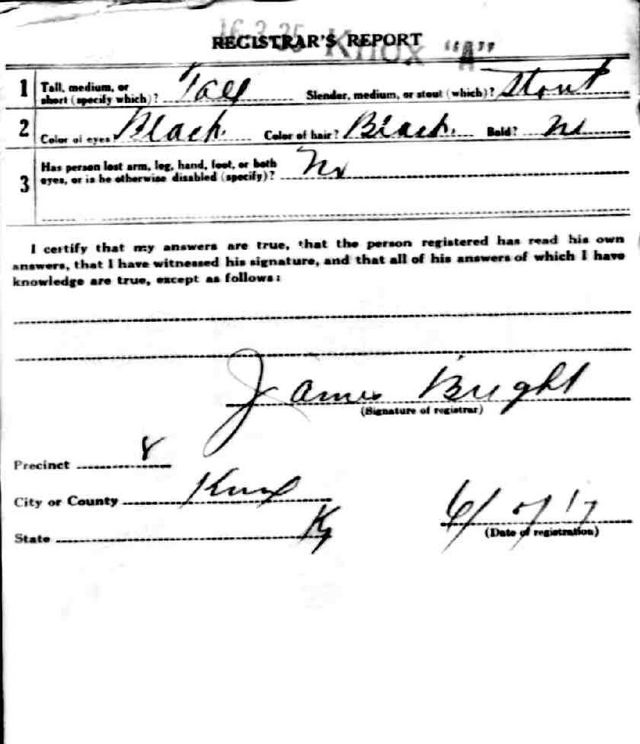 16-3-25 Knox "A"
REGISTRAR'S REPORT
1 Tall, medium, or short (specify which)? Tall Slender, medium, or stout (which)? Stout
2 Color of eyes Black. Color of hair? Black. Bald? No
3 Has person lost arm, leg, hand, foot, or both eyes, or is he otherwise disabled (specify)? No
I certify that my answers are true, that the person registered has read his own
answers, that I have witnessed his signature, and that all of his answers of which I have
knowledge are true, except as follows:
James Bright
(Signature of registrar)
Precinct 8
City or County Knox
State Ky
(Date of registration)